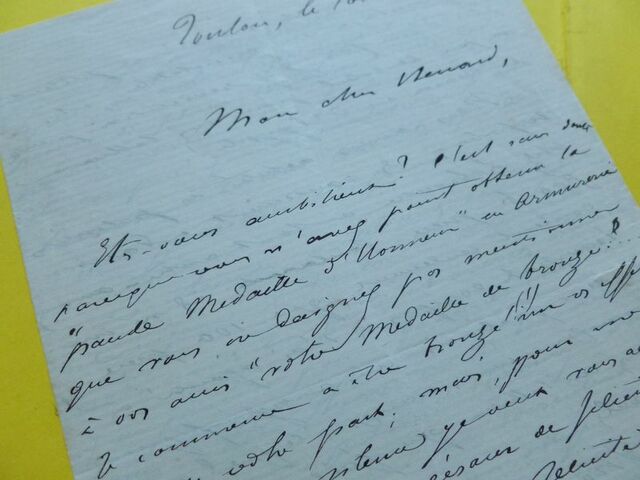 Toulon, le
Mon cher
Etes-vous ambitieux? C'est sans doute
parceque vous n'avez point obtenu la
"grande Médaille d'Honneur" en Armurerie
que vous ne daignez pas mentionner
à vos amis "votre Médaille de bronze!..
Je commence à être bronzé!!! sur vos
votre part; mais, pour
je veux vous
de